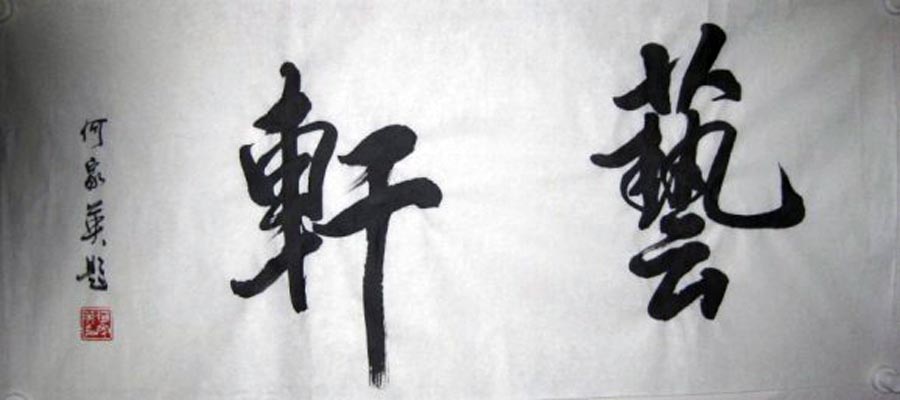 藝軒
何家英題